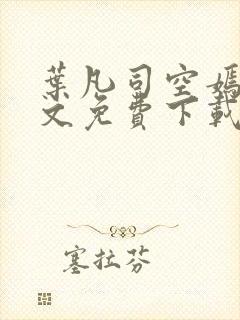 葉凡司空嫣
文免費下載
塞拉芬